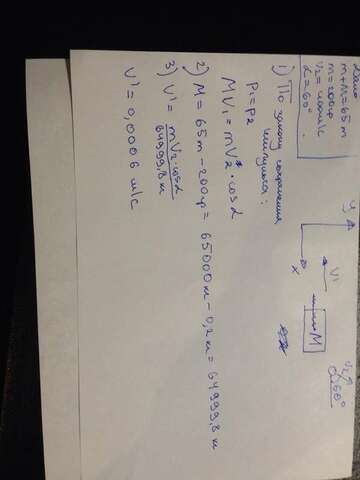 Дано
m+M=65т
m=200гр
V₂=400м/с
α=60°
y
x
V₁
M
V₂
60°
1) По закону сохранения
импульса:
P₁=P₂
MV₁=mV₂·cosα
2) M=65т-200гр=65000кг-0,2кг=64999,8кг
3) V'=mV₂·cosα
64999,8кг
V'=0,0006 м/с